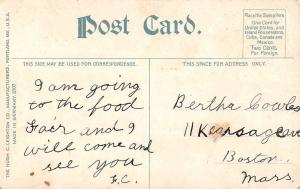 Post Card.
Place the Stamp here
One Cent for
United States, and
Island Possessions,
Cuba, Canada and
Mexico.
Two Cents
For Foreign.
THIS SIDE MAY BE USED FOR CORRESPONDENCE.
THIS SPACE FOR ADDRESS ONLY.
THE HUGH C. LEIGHTON CO., MANUFACTURERS, PORTLAND, ME., U.S.A.
MADE IN GERMANY
I am going
to the food
Fair and I
will come and
see you
F.C.
Bertha Cowles
11 Kensage
Boston.
Mass.